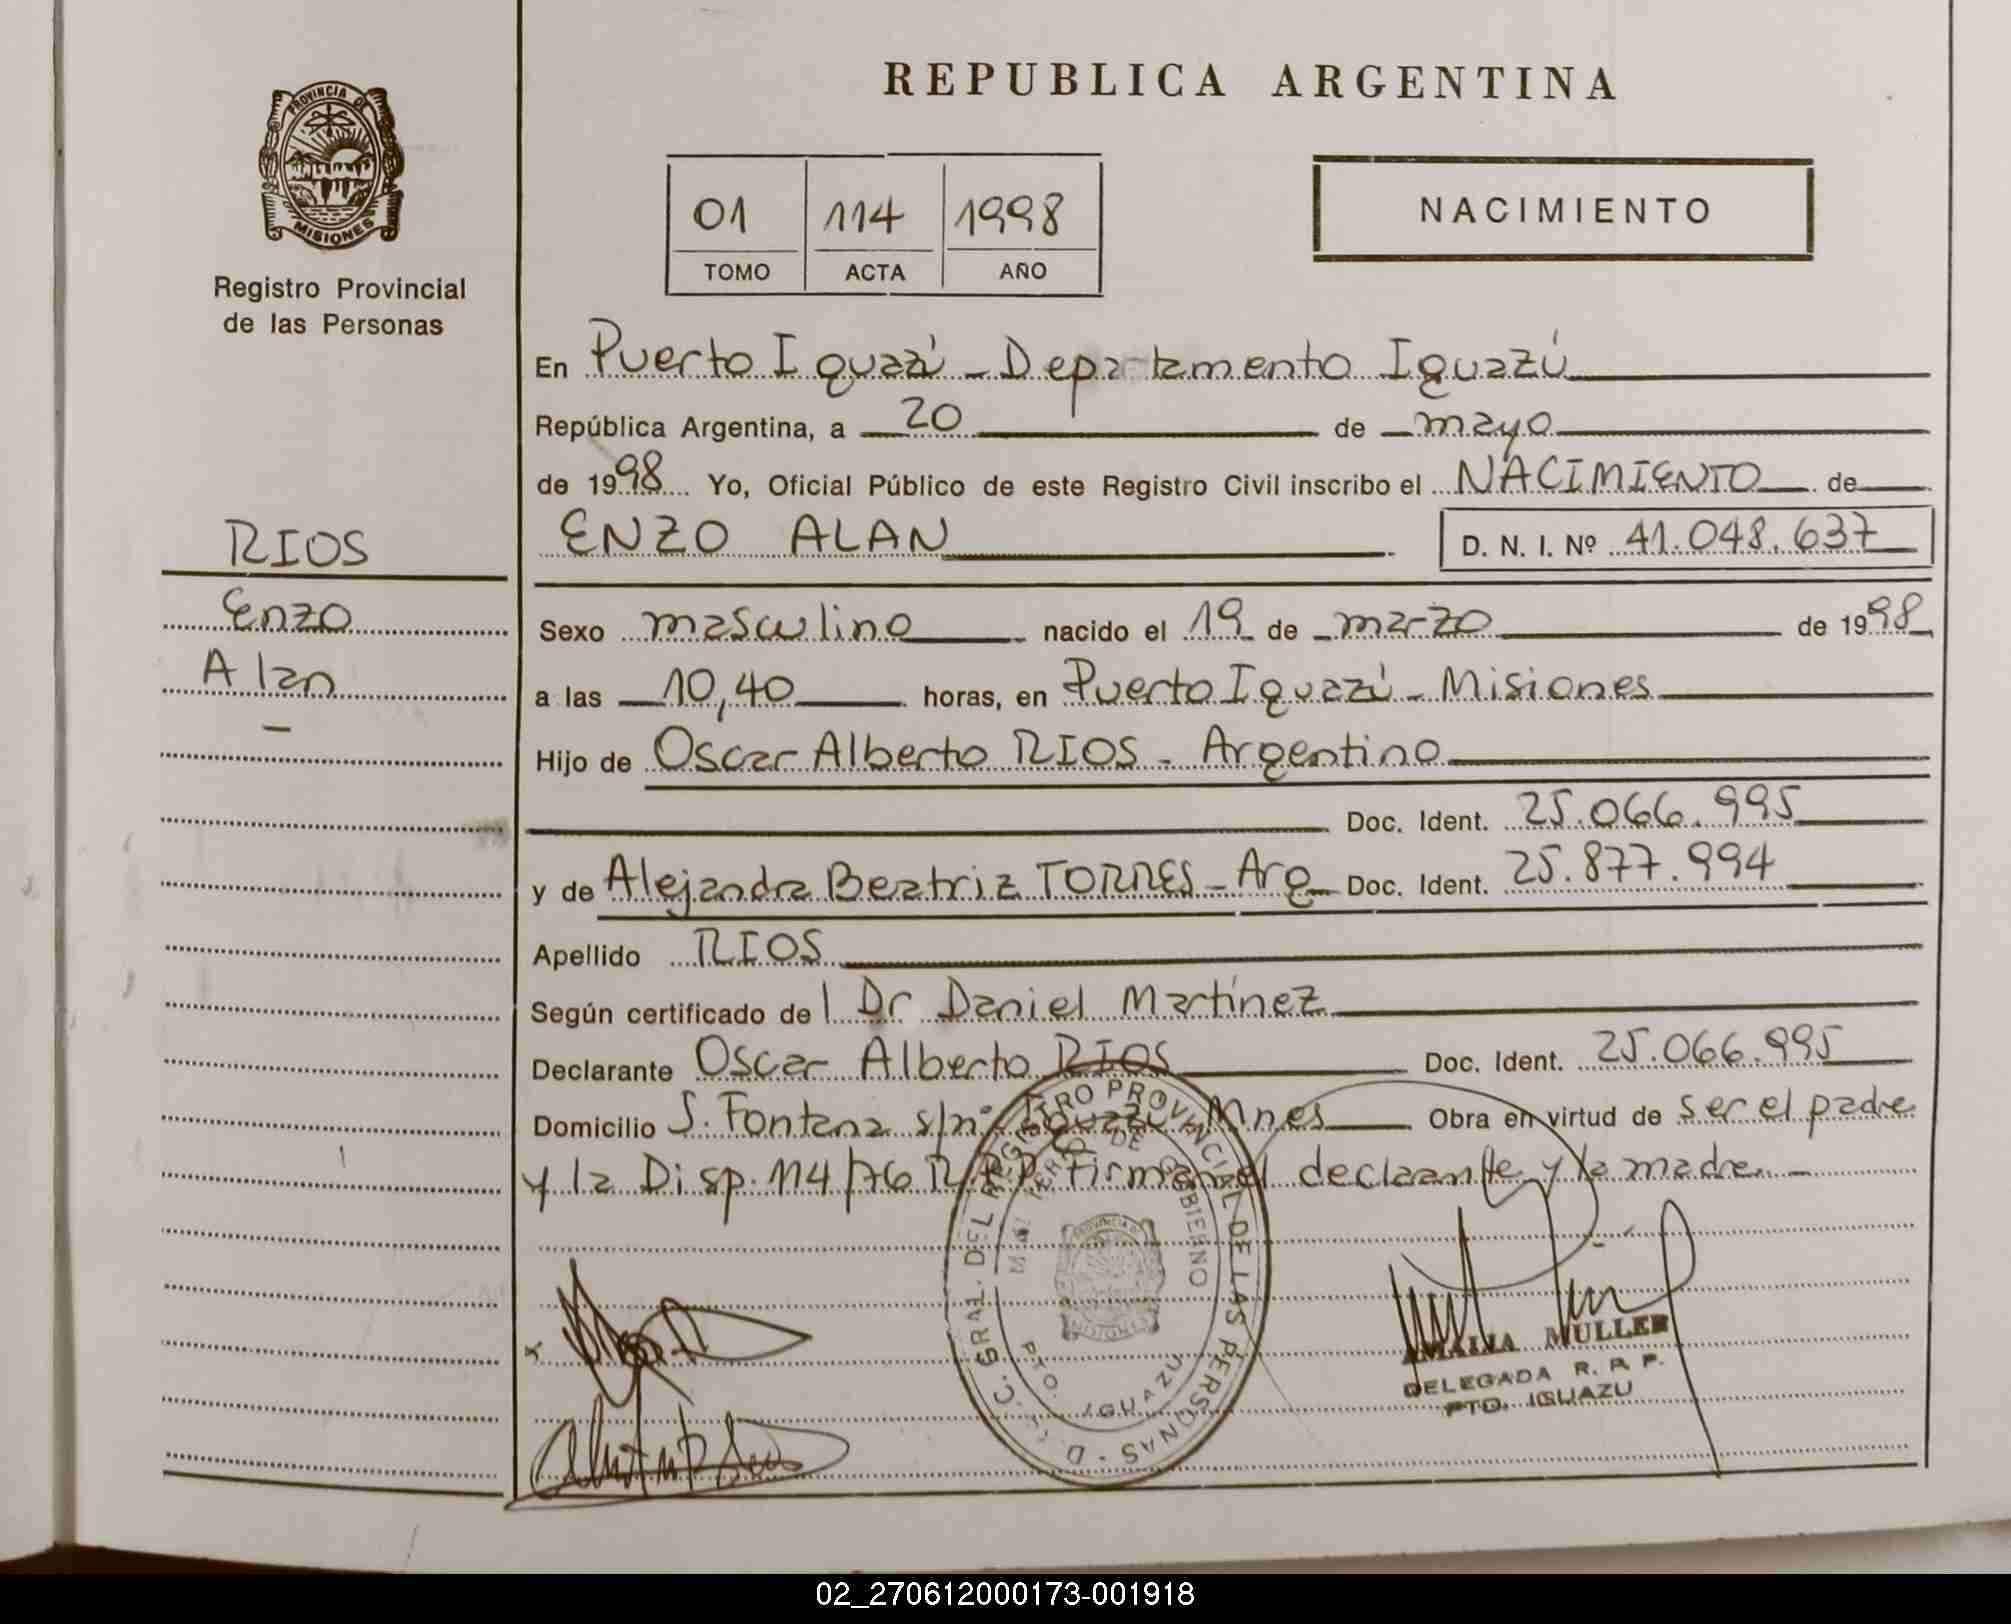 REPUBLICA ARGENTINA
PROVINCIA DE
MISIONES
Registro Provincial
de las Personas
01 114 1998
TOMO ACTA AÑO
NACIMIENTO
En Puerto Iguazú - Departamento Iguazú
República Argentina, a 20 de mayo
de 1998 Yo, Oficial Público de este Registro Civil inscribo el NACIMIENTO de
RIOS
Enzo
Alan
-
ENZO ALAN D. N. I. Nº 41.048.637
Sexo masculino nacido el 19 de marzo de 1998
a las 10,40 horas, en Puerto Iguazú - Misiones
Hijo de Oscar Alberto RIOS - Argentino
Doc. Ident. 25.066.995
y de Alejandra Beatriz TORRES - Arg Doc. Ident. 25.877.994
Apellido RIOS
Según certificado de l Dr Daniel Martínez
Declarante Oscar Alberto RIOS Doc. Ident. 25.066.995
Domicilio S. Fontana s/nº Iguazú Mnes Obra en virtud de ser el padre
y la Disp. 114/76 R.P.P. Firman el declarante y la madre -
GRAL. DEL REGISTRO PROVINCIAL DE LAS PERSONAS - D
MINISTERIO DE GOBIERNO
PROVINCIA DE
MISIONES
PTO. IGUAZU
AMALIA MULLER
DELEGADA R. P. P.
PTO. IGUAZU
02_270612000173-001918